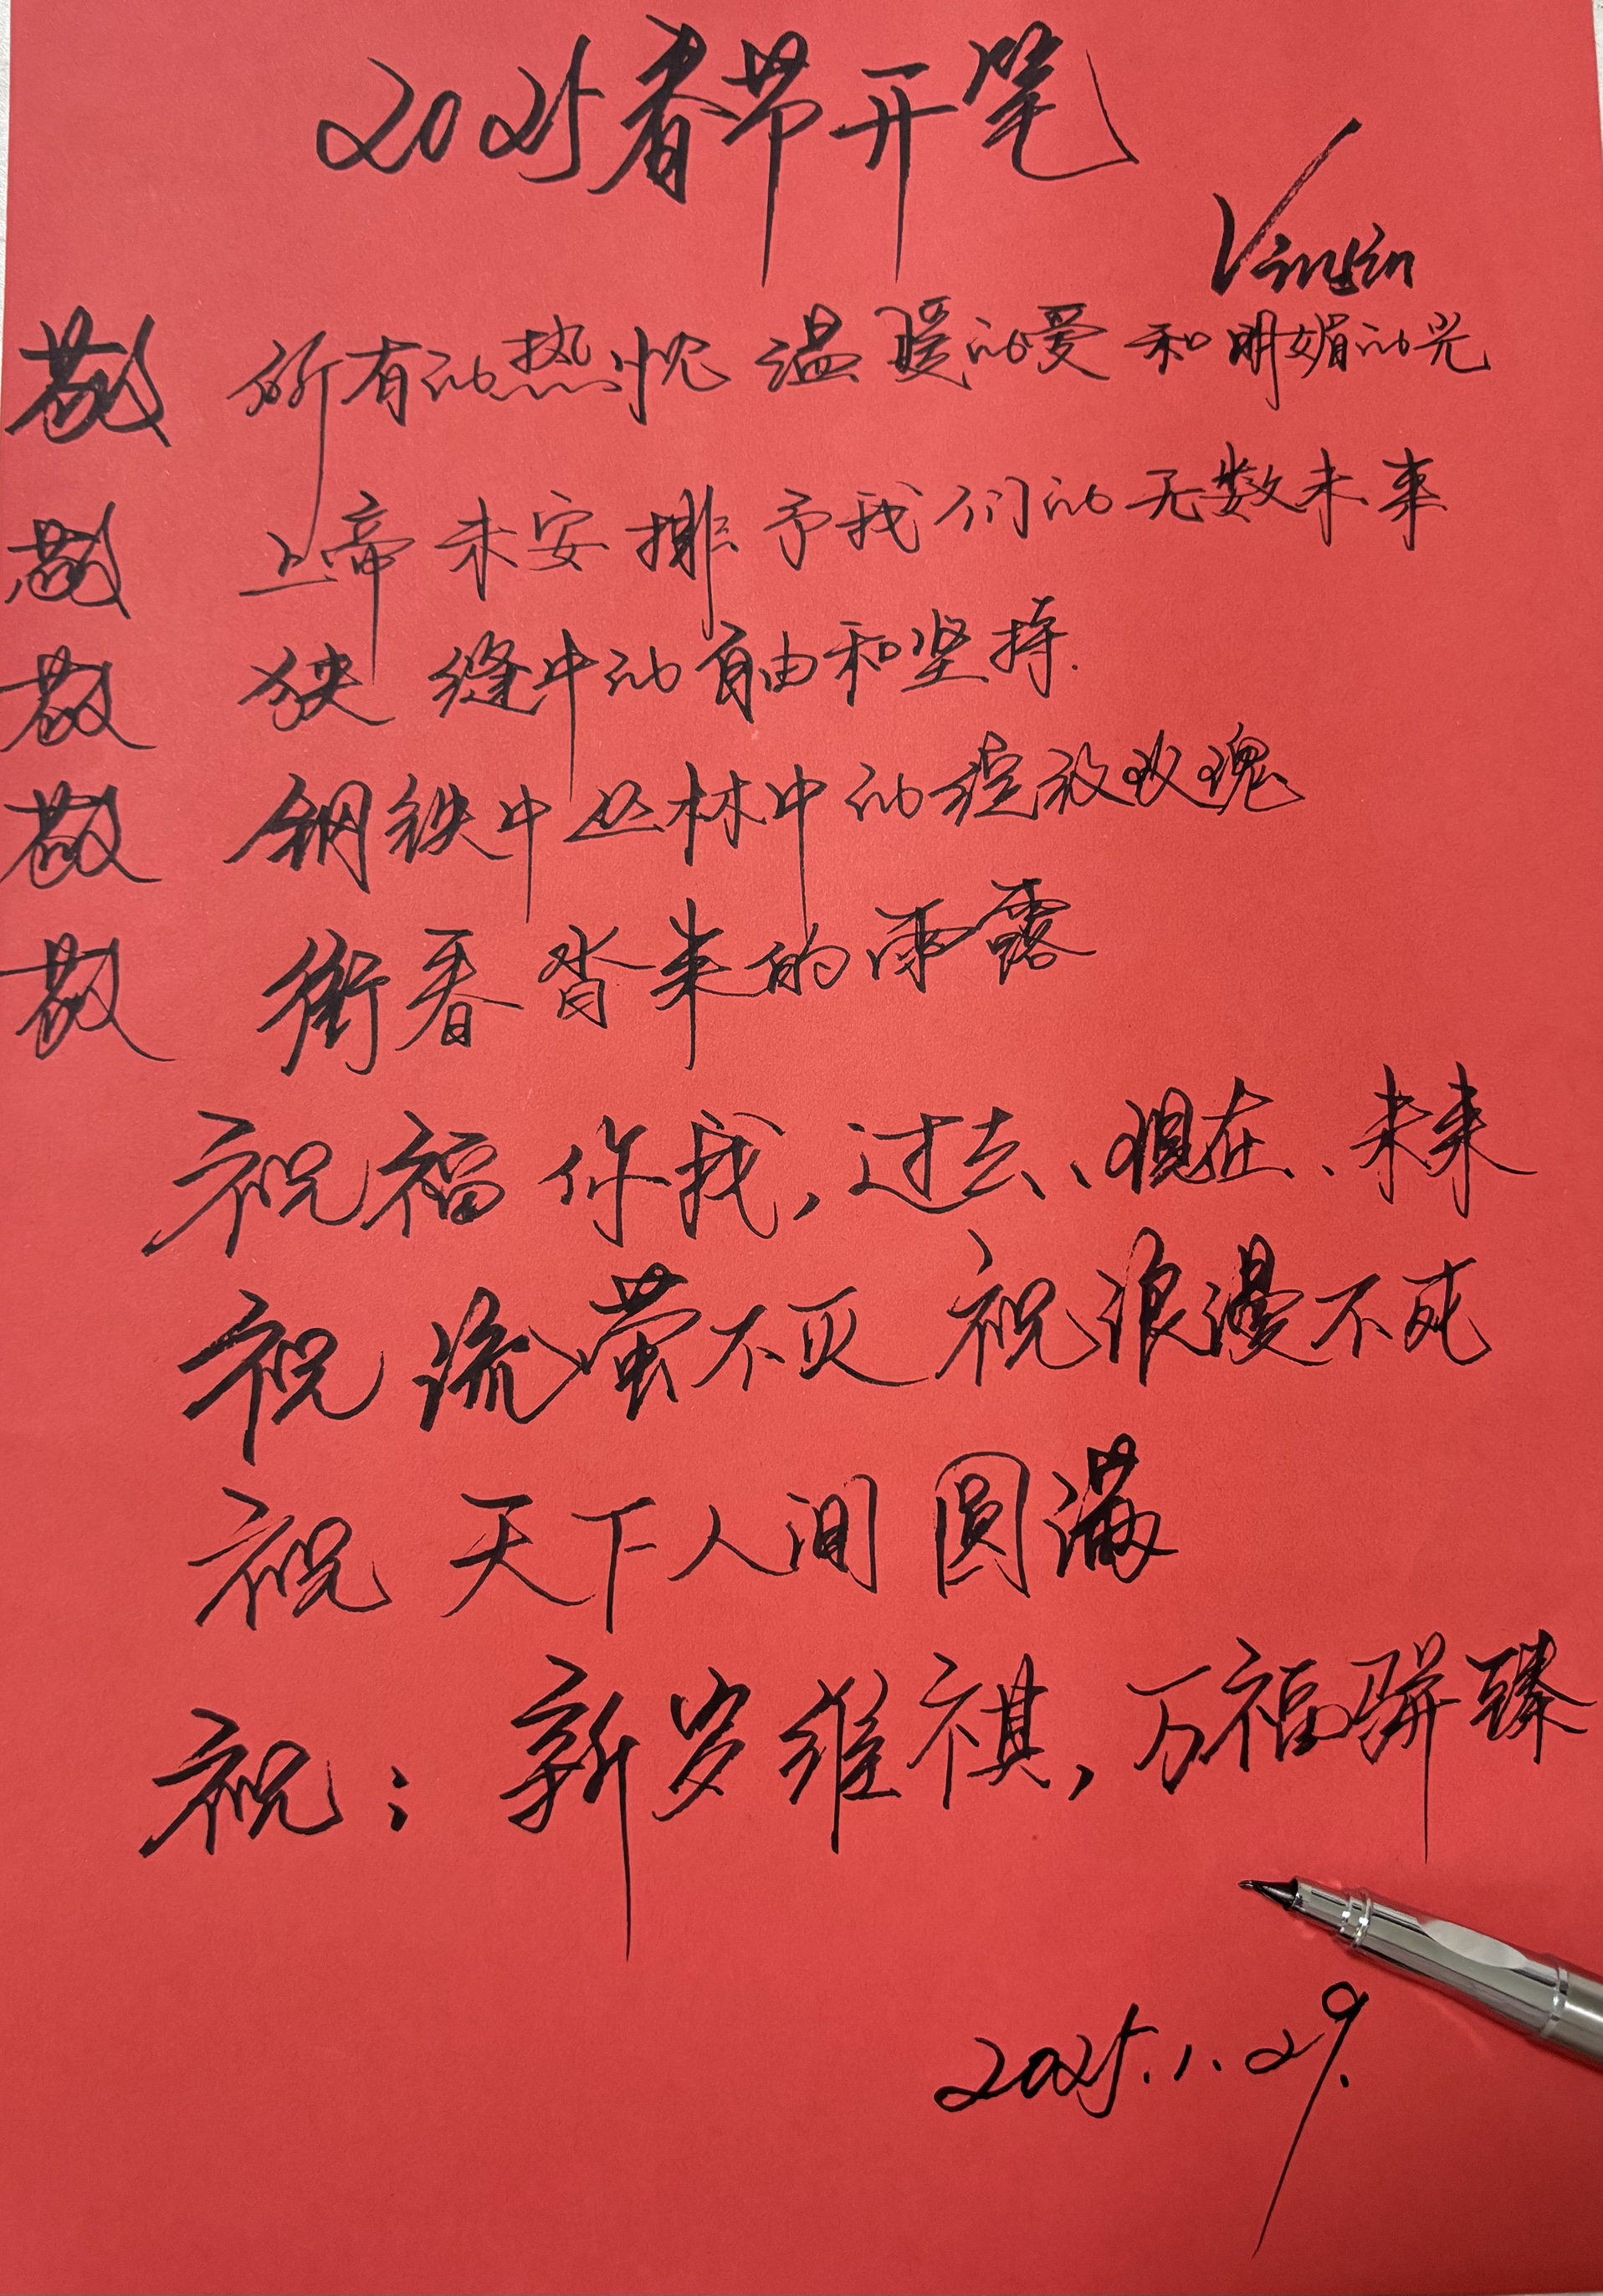 2025春节开笔
敬 所有的热忱 温暖的爱 和明媚的光
敬 上帝未安排予我们的无数未来
敬 狭缝中的自由和坚持.
敬 钢铁中丛林中的绽放玫瑰
敬 衔春踏来的雨露
祝福你我,过去、现在、未来
祝 流萤不灭 祝浪漫不死
祝 天下人间圆满
祝:新岁维祺,万福骈臻
2025.1.29.